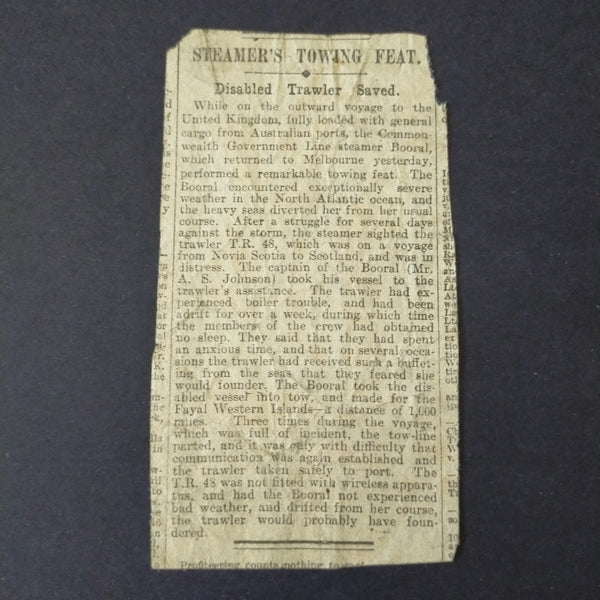 STEAMER'S TOWING FEAT.
Disabled Trawler Saved.
While on the outward voyage to the
United Kingdom, fully loaded with general
cargo from Australian ports, the Common-
wealth Government Line steamer Booral,
which returned to Melbourne yesterday,
performed a remarkable towing feat. The
Booral encountered exceptionally severe
weather in the North Atlantic ocean, and
the heavy seas diverted her from her usual
course. After a struggle for several days
against the storm, the steamer sighted the
trawler T.R. 48, which was on a voyage
from Novia Scotia to Scotland, and was in
distress. The captain of the Booral (Mr.
A. S. Johnson) took his vessel to the
trawler's assistance. The trawler had ex-
perienced boiler trouble, and had been
adrift for over a week, during which time
the members of the crew had obtained
no sleep. They said that they had spent
an anxious time, and that on several occa-
sions the trawler had received such a buffet-
ing from the seas that they feared she
would founder. The Booral took the dis-
abled vessel into tow, and made for the
Fayal Western Islands—a distance of 1,600
miles. Three times during the voyage,
which was full of incident, the tow-line
parted, and it was only with difficulty that
communication was again established and
the trawler taken safely to port. The
T.R. 48 was not fitted with wireless appara-
tus, and had the Booral not experienced
bad weather, and drifted from her course,
the trawler would probably have foun-
dered.
Profiteering counts nothing